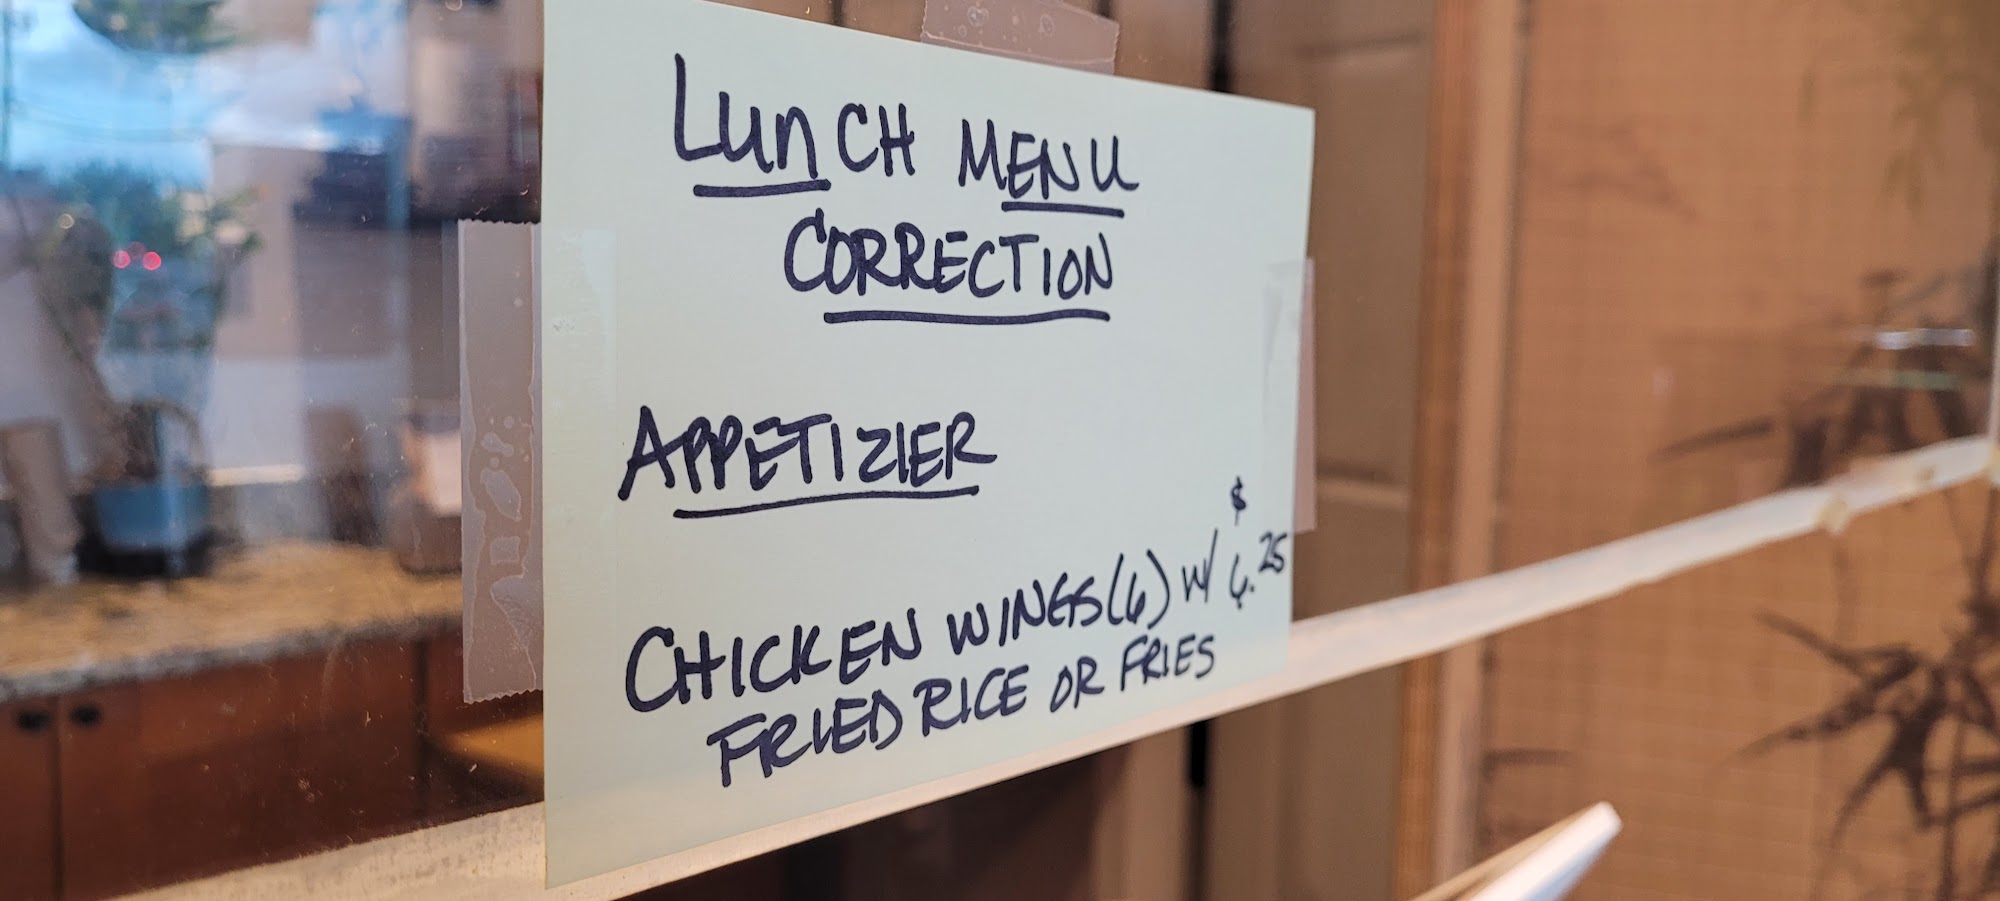 LunCH MENU
CORRECTION
APPETIZIER
CHICKEN WINGS (6) W/ $6.25
FRIED RICE OR FRIES